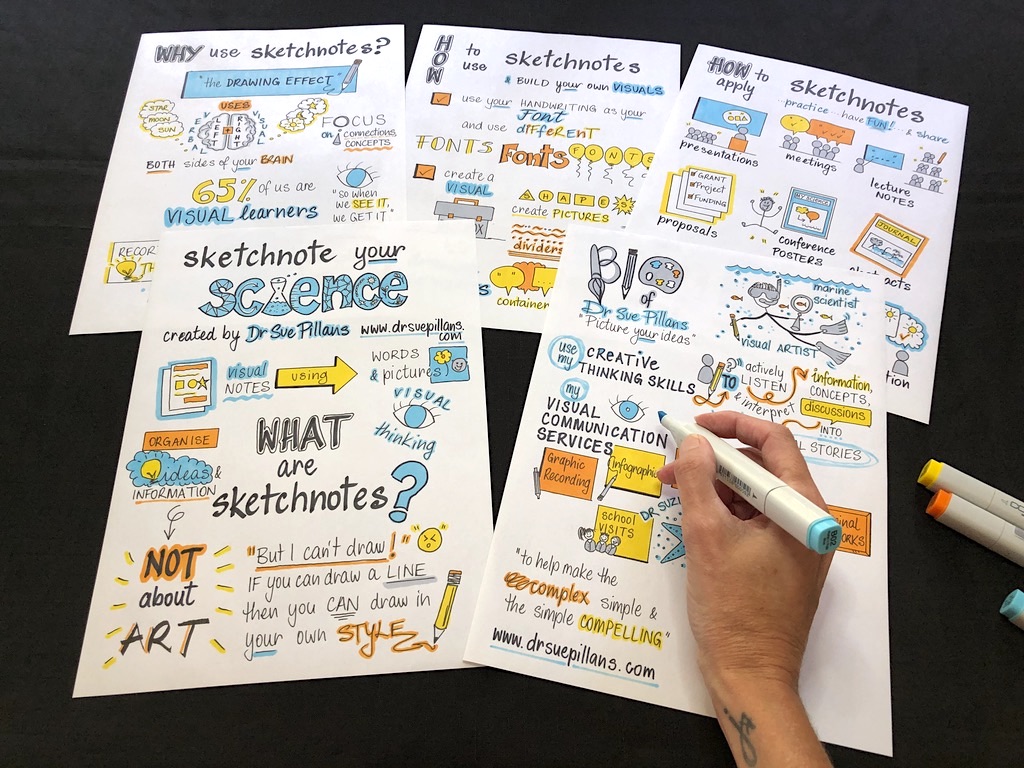 WHY use sketchnotes?
"the DRAWING EFFECT"
USES
STAR
MOON
SUN
VERBAL
LEFT
RIGHT
VISUAL
FOCUS
on connections,
CONCEPTS
BOTH sides of your BRAIN
65% of us are
VISUAL learners
"so when
we SEE IT,
we GET IT"
RECOR
HOW to use sketchnotes
& BUILD your own VISUALS
use your HANDWRITING as your
Font
and use diffERENT
FONTS Fonts FONTS
create a
VISUAL
SHAPES
create PICTURES
dividers
container
HOW to apply sketchnotes
...practice...have FUN!...& share
presentations
meetings
lecture
NOTES
GRANT
Project
FUNDING
proposals
MY SCIENCE
conference
POSTERS
JOURNAL
sketchnote your
science
created by Dr Sue Pillans www.drsuepillans.
com
visual
NOTES
using
WORDS
& pictures
VISUAL
thinking
ORGANISE
ideas &
INFORMATION
WHAT
are
sketchnotes?
NOT
about
ART
"But I can't draw!"
IF you can draw a LINE
then you CAN draw in
your own STYLE
BIO
of
Dr Sue Pillans
Picture your ideas
marine
scientist
visual ARTIST
use
my
CREATIVE
THINKING SKILLS
TO
actively
LISTEN
& interpret
information,
CONCEPTS,
discussions
INTO
STORIES
my
VISUAL
COMMUNICATION
SERVICES
Graphic
Recording
Infographics
school
VISITS
DR SUZIE
"to help make the
complex simple &
the simple COMPELLING"
www.drsuepillans.com